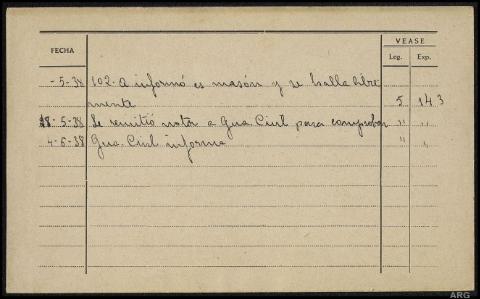 VEASE
FECHA Leg. Exp.
-5-38 102-A informó es masón y se halla libre
mente 5 143
18-5-38 Se remitió nota a Gua. Civil para comprobar " "
4-6-38 Gua. Civil informa " "
ARG